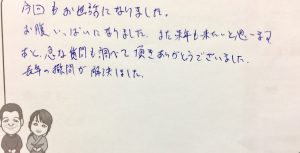 今回もお世話になりました。
お腹いっぱいになりました。また来年も来たいと思います
あと、急な質問も調べて頂きありがとうございました。
長年の疑問が解決しました。